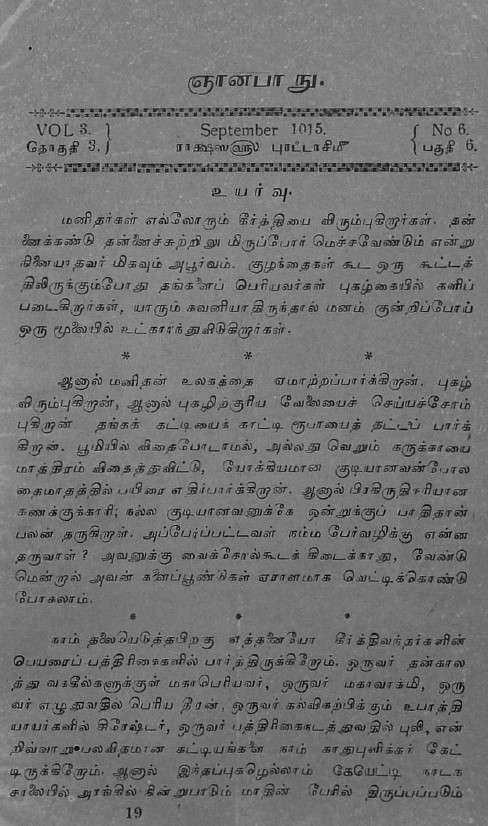 ஞானபாநு.
VOL 3. September 1915. No 6.
தொகுதி 3. ராக்ஷஸஹு புரட்டாசிமீ பகுதி 6.
உயர்வு.
மனிதர்கள் எல்லோரும் கீர்த்தியை விரும்புகிறார்கள். தன்
னைக்கண்டு தன்னைச்சுற்றிலு மிருப்போர் மெச்சவேண்டும் என்று
நினையாதவர் மிகவும் அபூர்வம். குழந்தைகள் கூட ஒரு கூட்டத்
திலிருக்கும்போது தங்களைப் பெரியவர்கள் புகழ்கையில் களிப்
படைகிறார்கள், யாரும் கவனியாதிருந்தால் மனம் குன்றிப்போய்
ஒரு மூலையில் உட்கார்ந்துவிடுகிறார்கள்.
* * *
ஆனால் மனிதன் உலகத்தை ஏமாற்றப்பார்க்கிறான். புகழ்
விரும்புகிறான், ஆனால் புகழிற்குரிய வேலையைச் செய்யச்சோம்
புகிறான். தங்கக் கட்டியைக் காட்டி ரூபாயைத் தட்டிப் பார்க்
கிறான். பூமியில் விதைபோடாமல், அல்லது வெறும் கருக்காயை
மாத்திரம் விதைத்துவிட்டு, யோக்கியமான குடியானவன்போல
தைமாதத்தில் பயிரை எதிர்பார்க்கிறான். ஆனால் பிரகிருதி சரியான
கணக்குக்காரி; நல்ல குடியானவனுக்கே ஒன்றுக்குப் பாதிதான்
பலன் தருகிறாள். அப்பேர்ப்பட்டவள் நம்ம பேர்வழிக்கு என்ன
தருவாள்? அவனுக்கு வைக்கோல்கூடக் கிடைக்காது, வேண்டு
மென்றால் அவன் களைப்பூண்டுகள் ஏராளமாக வெட்டிக்கொண்டு
போகலாம்.
* * *
நாம் தலையெடுத்தபிறகு எத்தனையோ கீர்த்திவந்தர்களின்
பெயரைப் பத்திரிகைகளில் பார்த்திருக்கிறோம். ஒருவர் தன்கால
த்து வக்கீல்களுக்குள் மகாபெரியவர், ஒருவர் மகாவாக்மி, ஒரு
வர் எழுதுவதில் பெரிய தீரன், ஒருவர் கல்விகற்பிக்கும் உபாத்தி
யாயர்களில் சிரேஷ்டர், ஒருவர் பத்திரிகைநடத்துவதில் புலி, என்
றிவ்வாறு பலவிதமான கட்டியங்களை நாம் காதுபுளிக்கக் கேட்
டிருக்கிறோம். ஆனால் இந்தப்புகழெல்லாம் கேயெட்டி நாடக
சாலையில் அரங்கில் நின்றுபாடும் மாதின் பேரில் திருப்பப்படும்
19